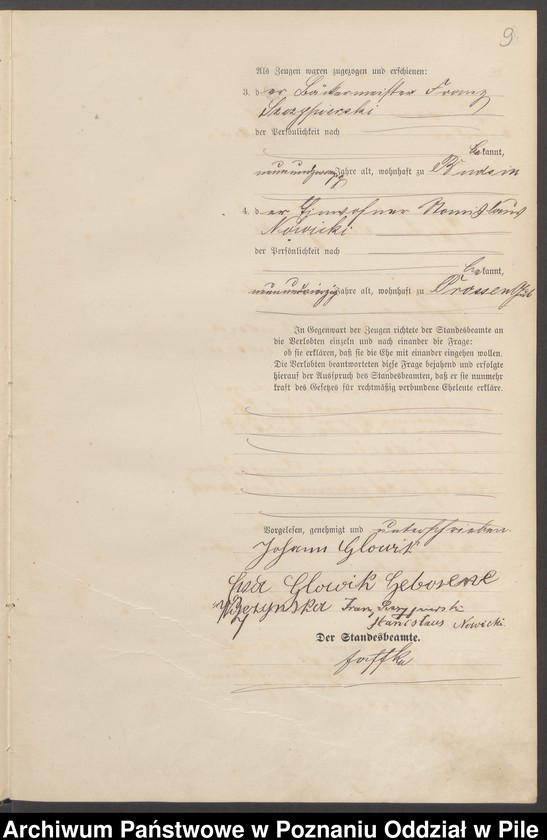 9.
Als Zeugen waren zugezogen und erschienen:
3. der Bäckermeister Franz
Szczypierski
der Persönlichkeit nach
bekannt,
neunundzwanzig Jahre alt, wohnhaft zu Budsin
4. der Einwohner Stanislaus
Nowicki
der Persönlichkeit nach
bekannt,
neunundvierzig Jahre alt, wohnhaft zu
In Gegenwart der Zeugen richtete der Standesbeamte an
die Verlobten einzeln und nach einander die Frage:
ob sie erklären, daß sie die Ehe mit einander eingehen wollen.
Die Verlobten beantworteten diese Frage bejahend und erfolgte
hierauf der Ausspruch des Standesbeamten, daß er sie nunmehr
kraft des Gesetzes für rechtmäßig verbundene Eheleute erkläre.
Vorgelesen, genehmigt und unterschrieben
Johann Glowik
Glowik Geborene
Franz Szczypierski
Stanislaus Nowicki
Der Standesbeamte.
Archiwum Państwowe w Poznaniu Oddział w Pile